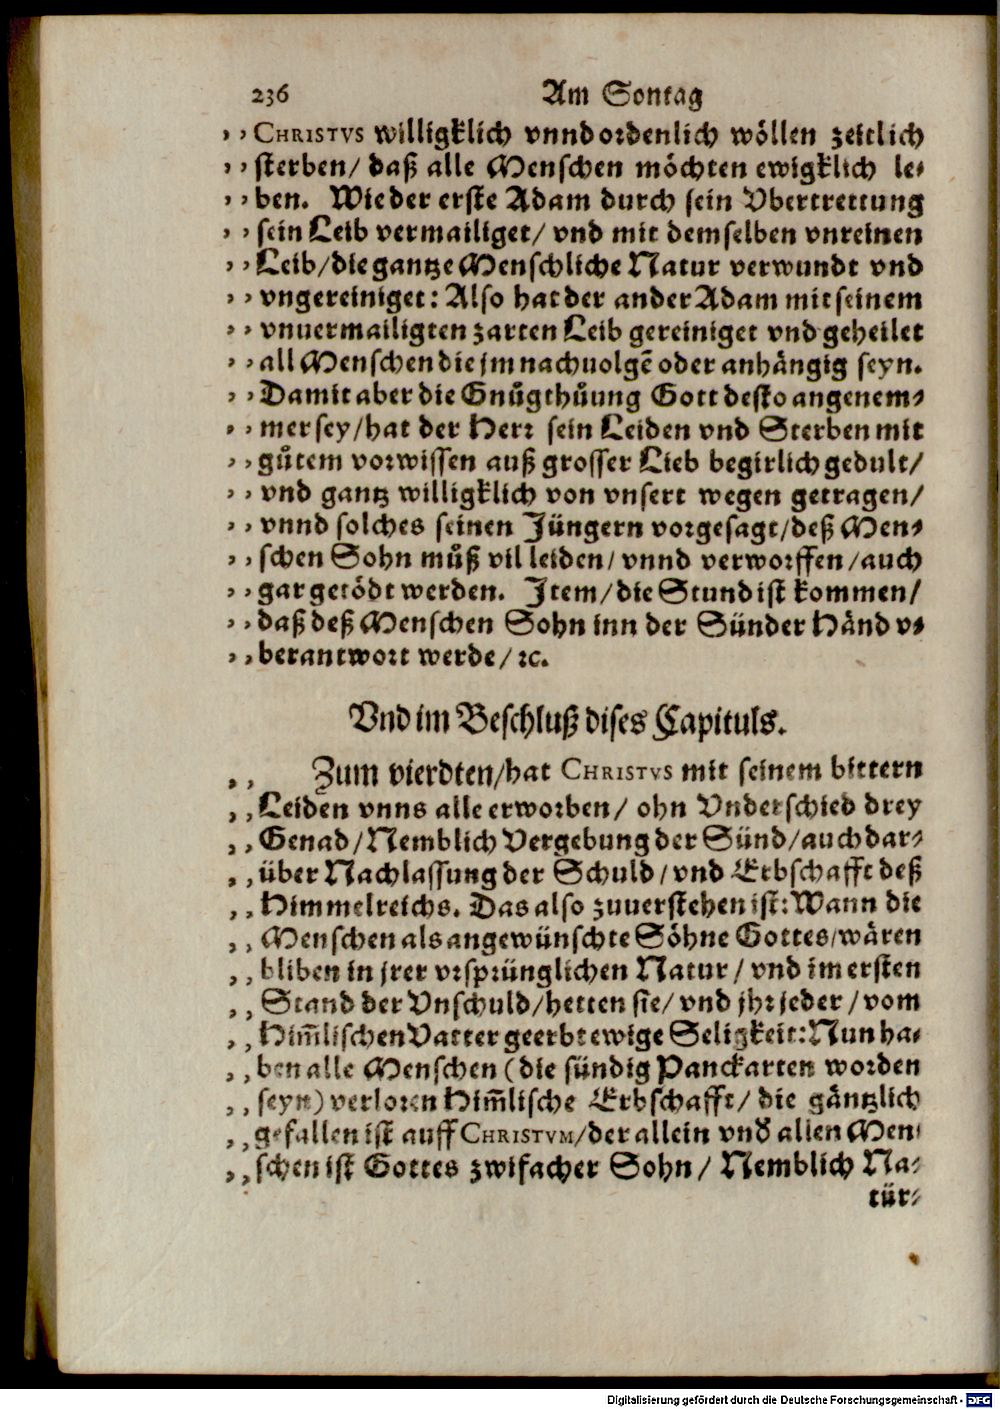 236 Am Sontag
,, CHRISTVS willigklich vnnd ordenlich wöllen zeitlich
,, sterben/ daß alle Menschen möchten ewigklich le⸗
,, ben. Wie der erste Adam durch sein Vbertrettung
,, sein Leib vermailiget/ vnd mit demselben vnreinen
,, Leib/ die gantze Menschliche Natur verwundt vnd
,, vngereiniget: Also hat der ander Adam mit seinem
,, vnuermailigten zarten Leib gereiniget vnd geheilet
,, all Menschen die jm nachuolgē oder anhängig seyn.
,, Damit aber die Gnůgthůung Gott desto angenem⸗
,, mer sey/ hat der Herr sein Leiden vnd Sterben mit
,, gůtem vorwissen auß grosser Lieb begirlich gedult/
,, vnd gantz willigklich von vnsert wegen getragen/
,, vnnd solches seinen Jüngern vorgesagt/ deß Men⸗
,, schen Sohn můß vil leiden/ vnnd verworffen/ auch
,, gar getödt werden. Item/ die Stund ist kommen/
,, daß deß Menschen Sohn inn der Sünder Händ v⸗
,, berantwort werde/ ꝛc.
Vnd im Beschluß dises Capituls.
,, Zum vierdten/ hat CHRISTVS mit seinem bittern
,, Leiden vnns alle erworben/ ohn Vnderschied drey
,, Genad/ Nemblich Vergebung der Sünd/ auch dar⸗
,, über Nachlassung der Schuld/ vnd Erbschafft deß
,, Himmelreichs. Das also zuuerstehen ist: Wann die
,, Menschen als angewünschte Söhne Gottes/ wären
,, bliben in jrer vrsprünglichen Natur/ vnd im ersten
,, Stand der Vnschuld/ hetten sie/ vnd jhr jeder/ vom
,, Him̄lischen Vatter geerbt ewige Seligkeit: Nun ha⸗
,, ben alle Menschen (die sündig Panckarten worden
,, seyn) verloren Him̄lische Erbschafft/ die gäntzlich
,, gefallen ist auff CHRISTVM/ der allein vnd̕ allen Men⸗
,, schen ist Gottes zwifacher Sohn/ Nemblich Na⸗
tür⸗
Digitalisierung gefördert durch die Deutsche Forschungsgemeinschaft - DFG